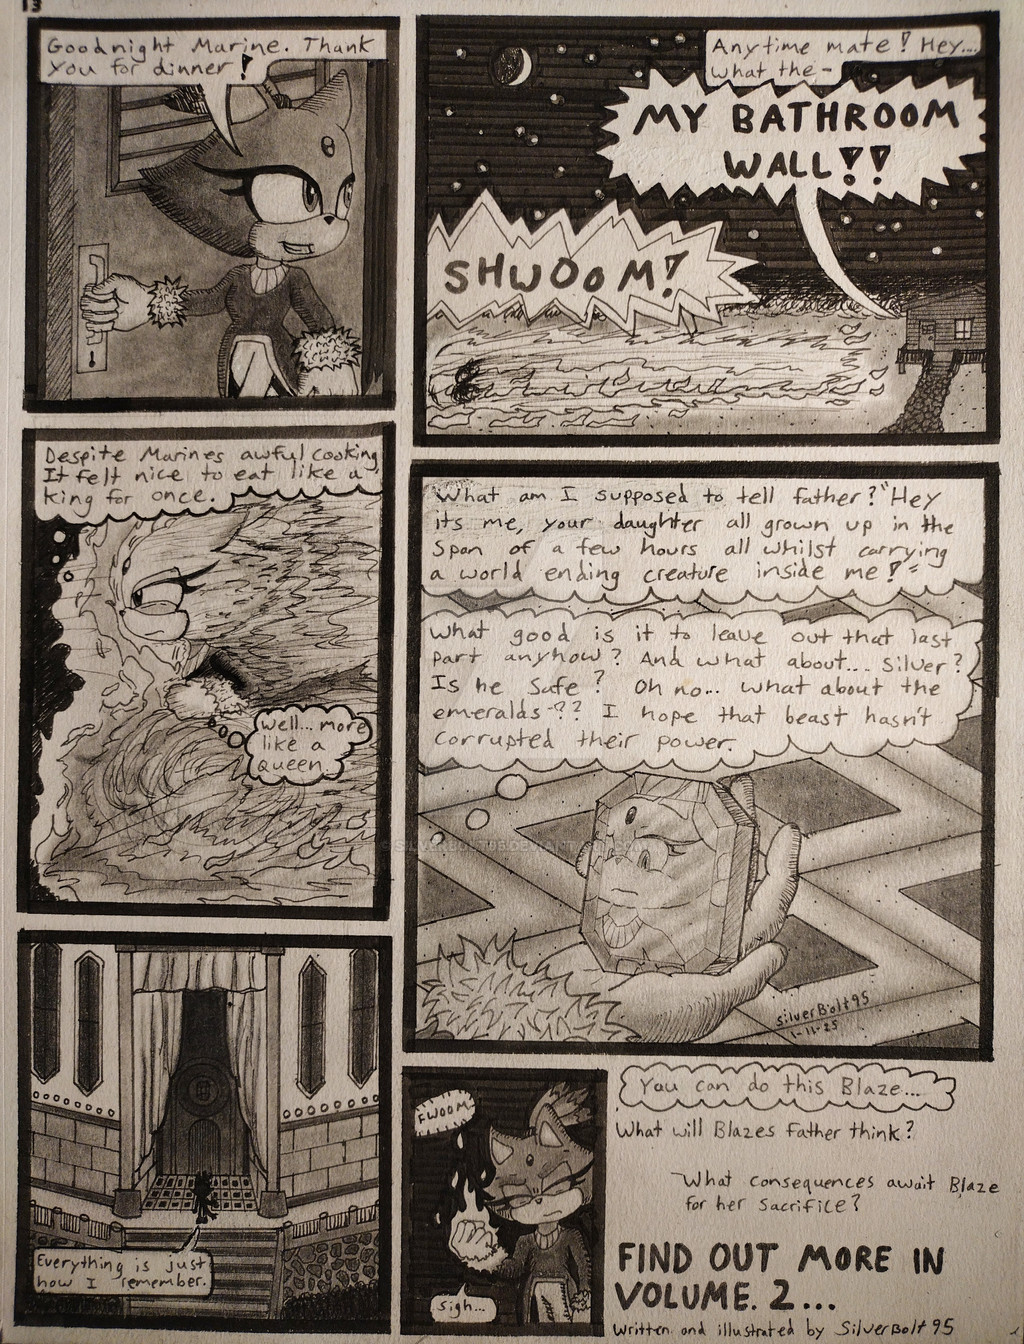 13
Goodnight Marine. Thank
you for dinner!
Anytime mate! Hey....
What the-
MY BATHROOM
WALL!!
SHWOOM!
Despite Marines awful cooking
It felt nice to eat like a
king for once.
Well... more
like a
Queen.
What am I supposed to tell father? "Hey
its me, your daughter all grown up in the
span of a few hours all whilst carrying
a world ending creature inside me!"
What good is it to leave out that last
part anyhow? And what about... Silver?
Is he safe? Oh no... what about the
emeralds-?? I hope that beast hasn't
corrupted their power.
SilverBolt95
1-11-25
Everything is just
how I remember.
FWOOM
sigh...
You can do this Blaze...
What will Blazes Father think?
What consequences await Blaze
for her sacrifice?
FIND OUT MORE IN
VOLUME. 2...
Written and illustrated by SilverBolt95